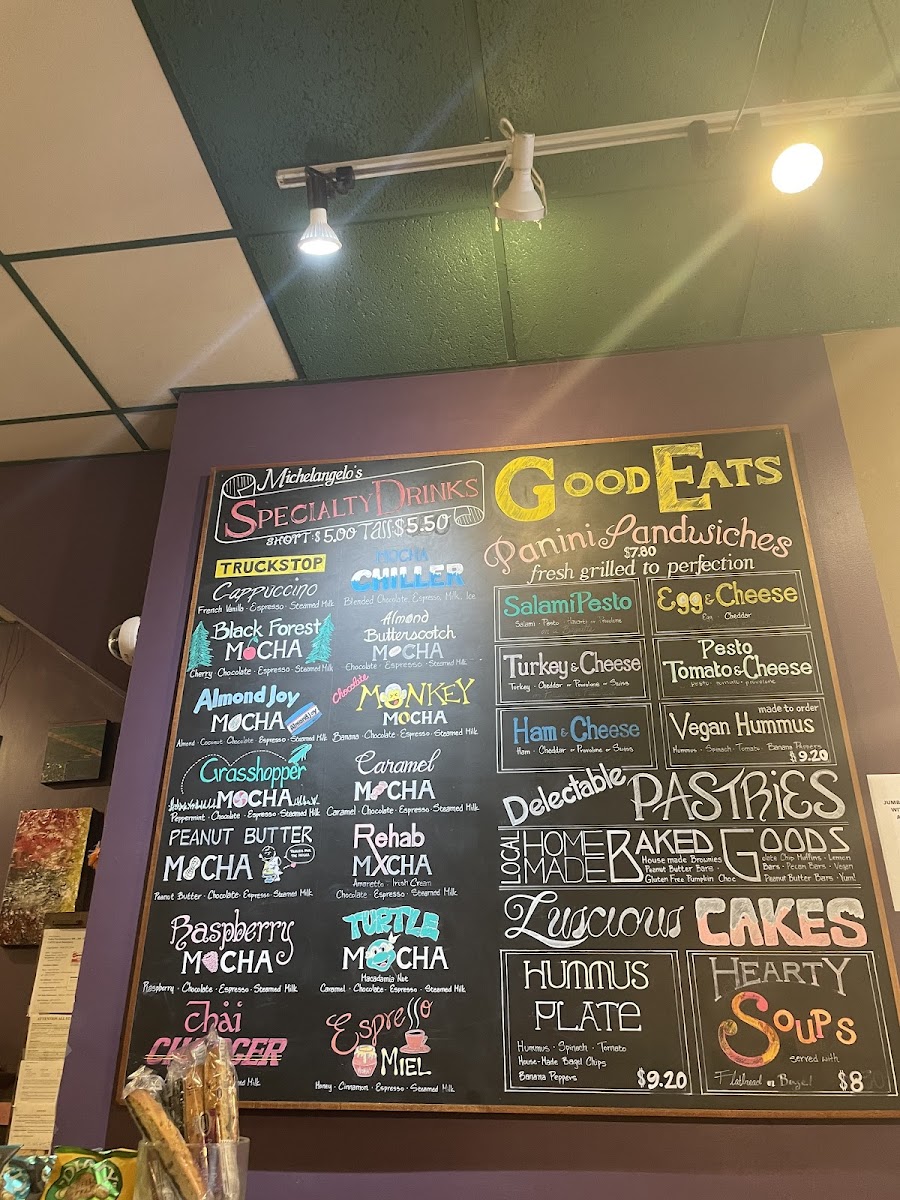 Michelangelo's
SPECIALTY DRINKS
SHORT $5.00 Tall $5.50
TRUCKSTOP
Cappuccino
French Vanilla · Espresso · Steamed Milk
Black Forest
MOCHA
Cherry · Chocolate · Espresso · Steamed Milk
Almond Joy
MOCHA
Almond Joy
Almond · Coconut · Chocolate · Espresso · Steamed Milk
Grasshopper
MOCHA
Peppermint · Chocolate · Espresso · Steamed Milk
PEANUT BUTTER
MOCHA
Peanut Butter · Chocolate · Espresso · Steamed Milk
Raspberry
MOCHA
Raspberry · Chocolate · Espresso · Steamed Milk
Chai
CHARGER
Milk
MOCHA
CHILLER
Blended Chocolate, Espresso, Milk, Ice
Almond
Butterscotch
MOCHA
Chocolate · Espresso · Steamed Milk
Chocolate
MONKEY
MOCHA
Banana · Chocolate · Espresso · Steamed Milk
Caramel
MOCHA
Caramel · Chocolate · Espresso · Steamed Milk
Rehab
MXCHA
Amaretto · Irish Cream
Chocolate · Espresso · Steamed Milk
TURTLE
MOCHA
Macadamia Nut
Caramel · Chocolate · Espresso · Steamed Milk
Espreſſo
MIEL
Honey · Cinnamon · Espresso · Steamed Milk
GOOD EATS
Panini Sandwiches
$7.80
fresh grilled to perfection
Salami Pesto
Salami · Pesto · or Provolone
Egg & Cheese
Egg · Cheddar
Turkey & Cheese
Turkey · Cheddar or Provolone or Swiss
Pesto
Tomato & Cheese
pesto · tomato · provolone
Ham & Cheese
Ham · Cheddar or Provolone or Swiss
made to order
Vegan Hummus
Hummus · Spinach · Tomato · Banana Peppers
$9.20
Delectable PASTRIES
LOCAL HOME MADE BAKED GOODS
House made Brownies
Peanut Butter Bars
Gluten Free Pumpkin Choc
olate Chip Muffins · Lemon
Bars · Pecan Bars · Vegan
Peanut Butter Bars · Yum!
Luscious CAKES
HUMMUS
PLATE
Hummus · Spinach · Tomato
House-Made Bagel Chips
Banana Peppers
$9.20
HEARTY
SOUPS
served with
Flatbread or Bagel
$8